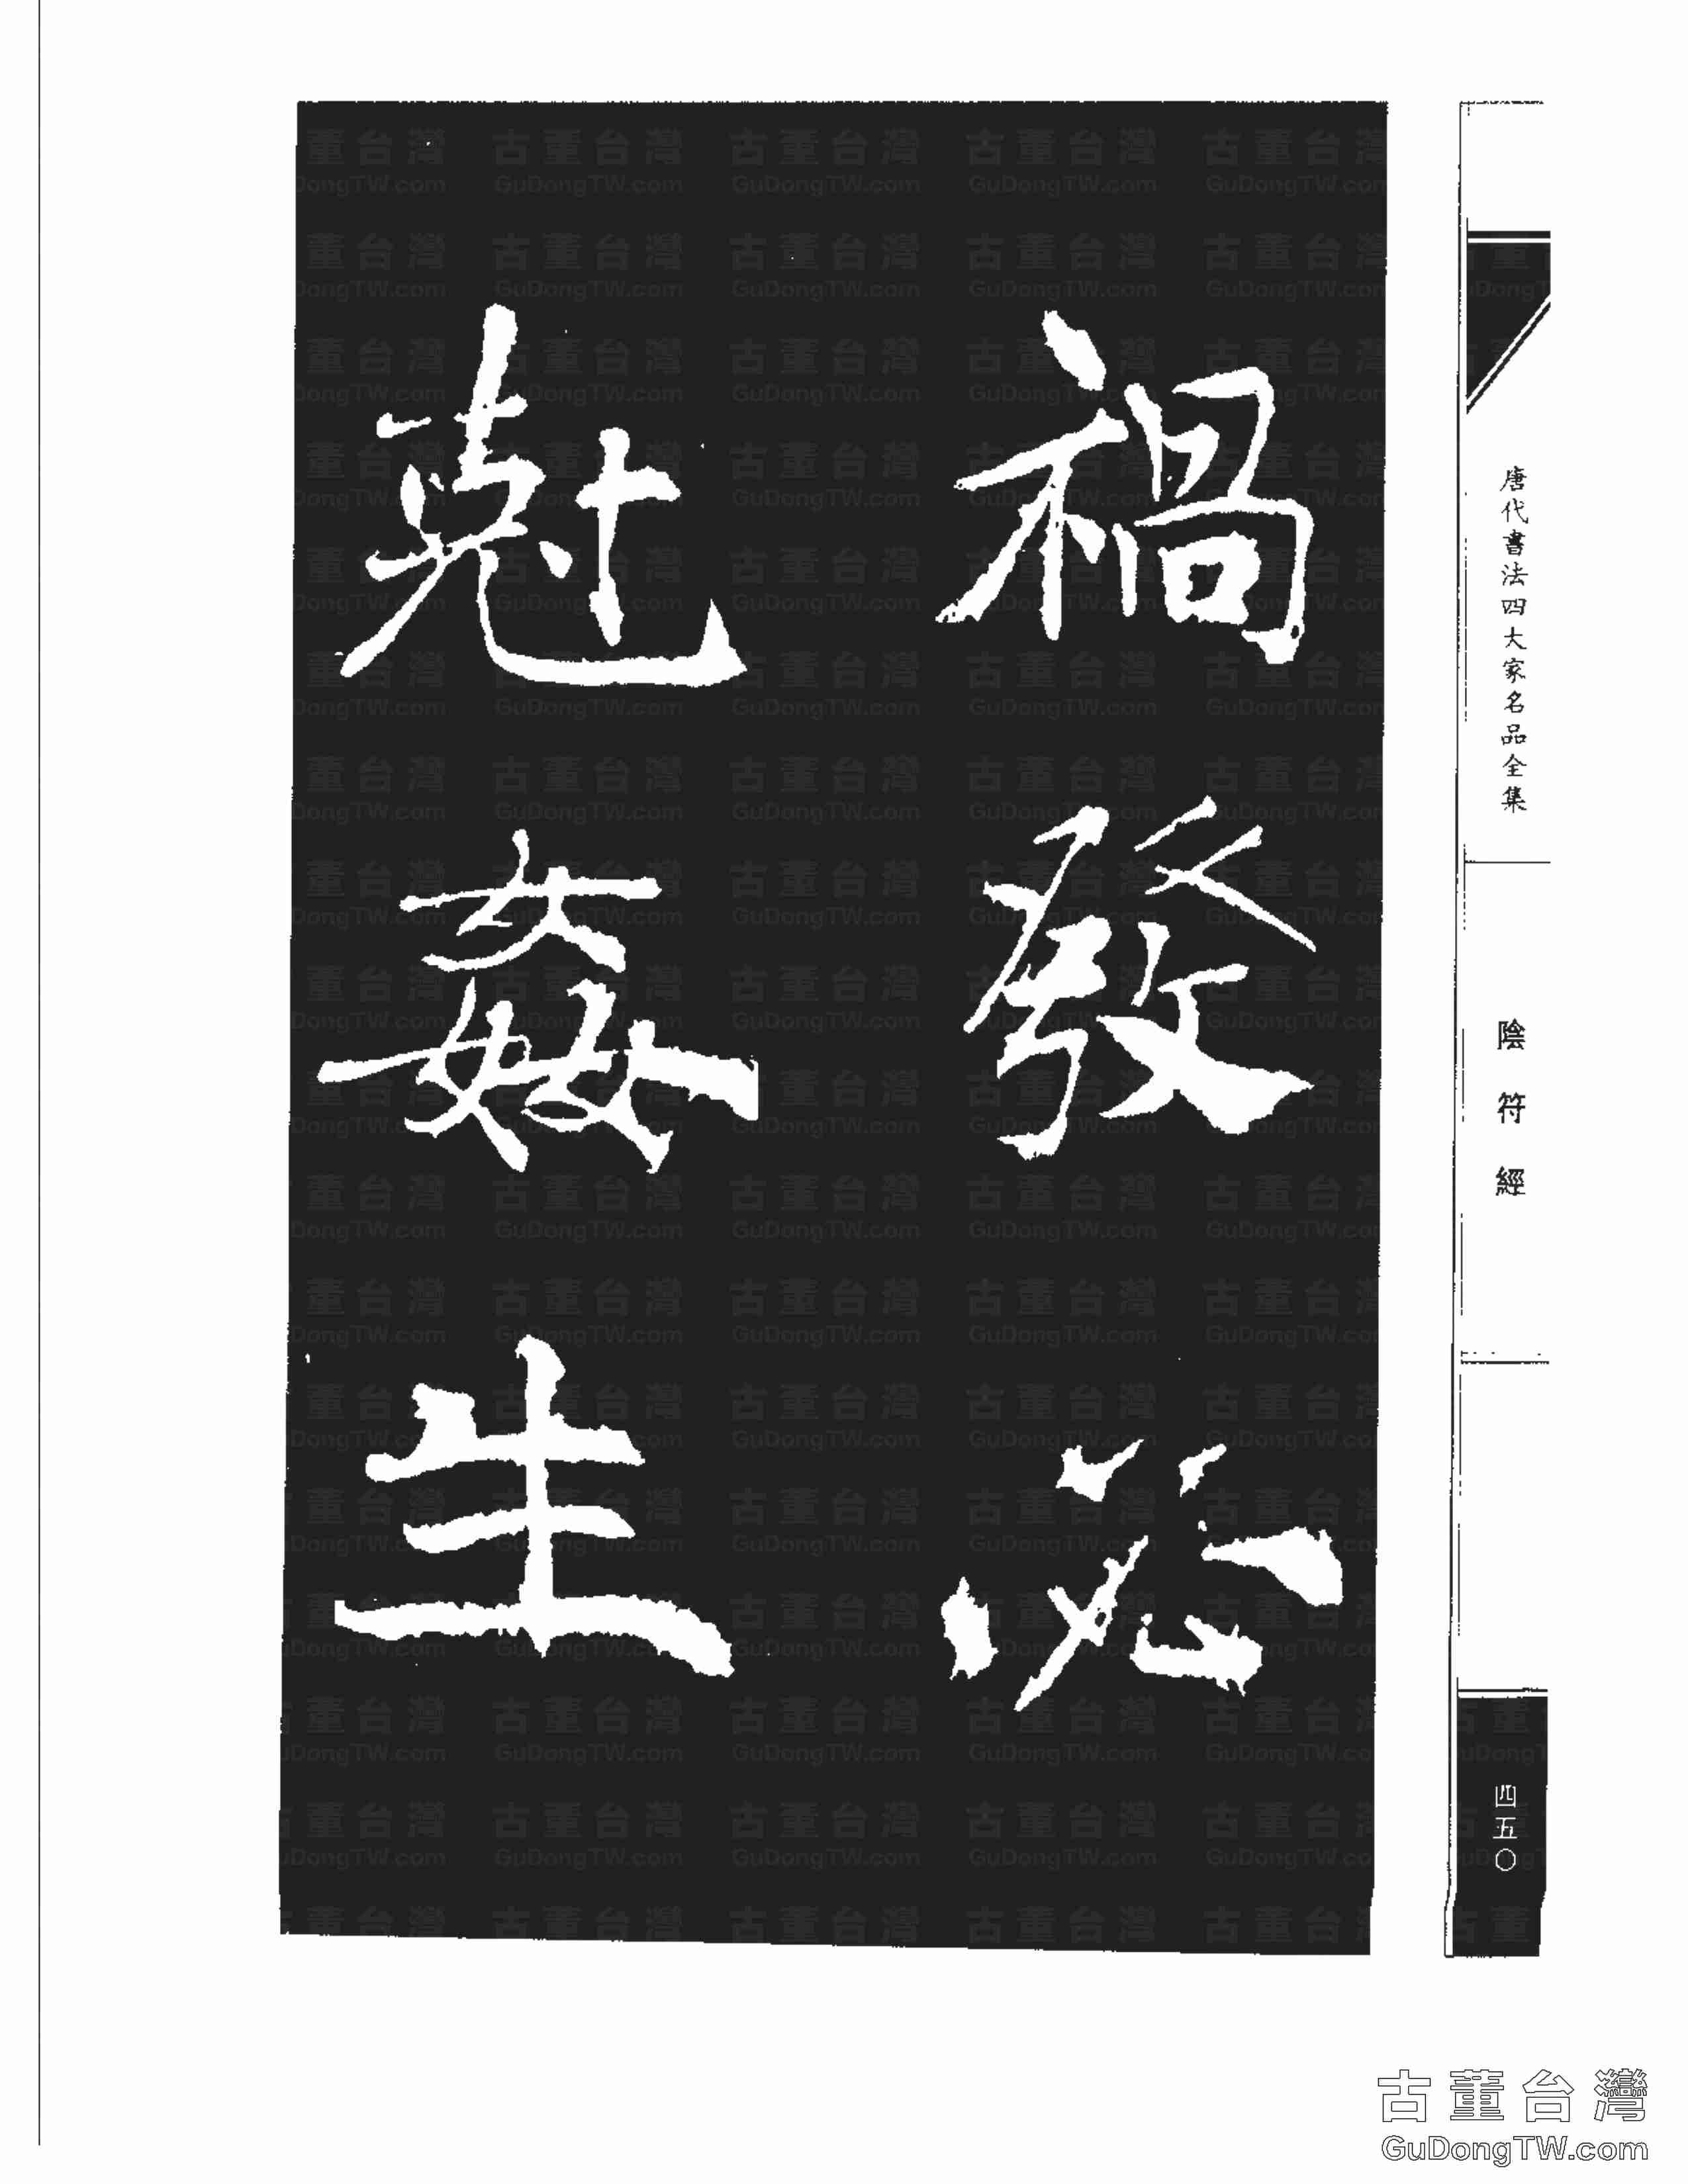 唐代書法四大家名品全集
陰符經
四五〇
禍發必
尅姦生
古董台灣
GuDongTW.com